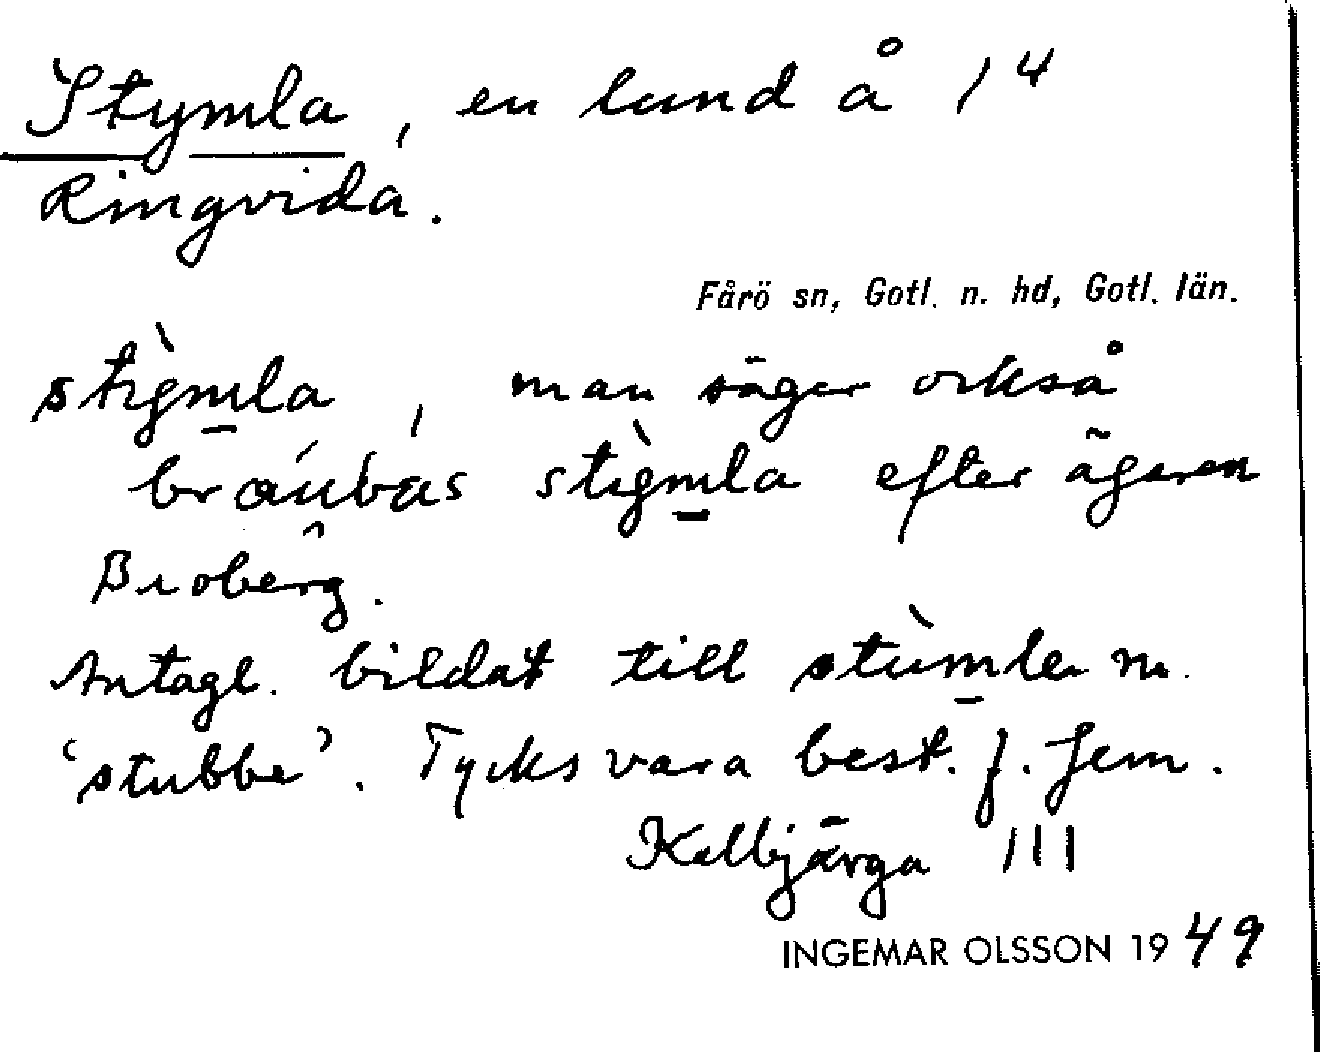 Stymla, en lund å 1⁴
Ringvida.
Fårö sn, Gotl. n. hd, Gotl. län.
man säger också
efter ägaren
Broberg.
Antagl. bildat till m.
'stubbe'. Tycks vara best. f. fem.
Kalbjärga III
INGEMAR OLSSON 1949